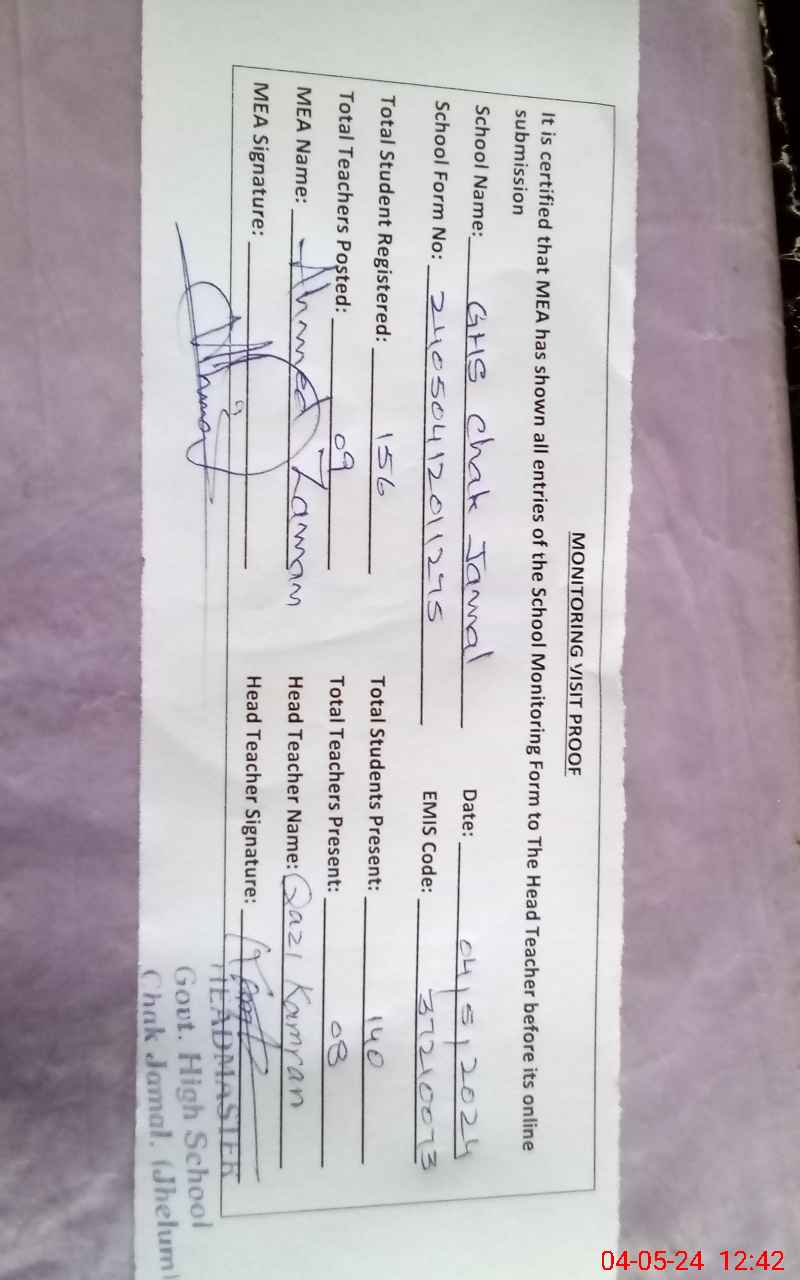 MONITORING VISIT PROOF
It is certified that MEA has shown all entries of the School Monitoring Form to The Head Teacher before its online
submission
School Name: GHS Chak Jamal Date: 04/5/2024
School Form No: 24050412011275 EMIS Code: 37210073
Total Student Registered: 156 Total Students Present: 140
Total Teachers Posted: 09 Total Teachers Present: 08
MEA Name: Ahmed Zaman Head Teacher Name: Qazi Kamran
MEA Signature: Head Teacher Signature:
HEADMASTER
Govt. High School
Chak Jamal. (Jhelum)
04-05-24 12:42